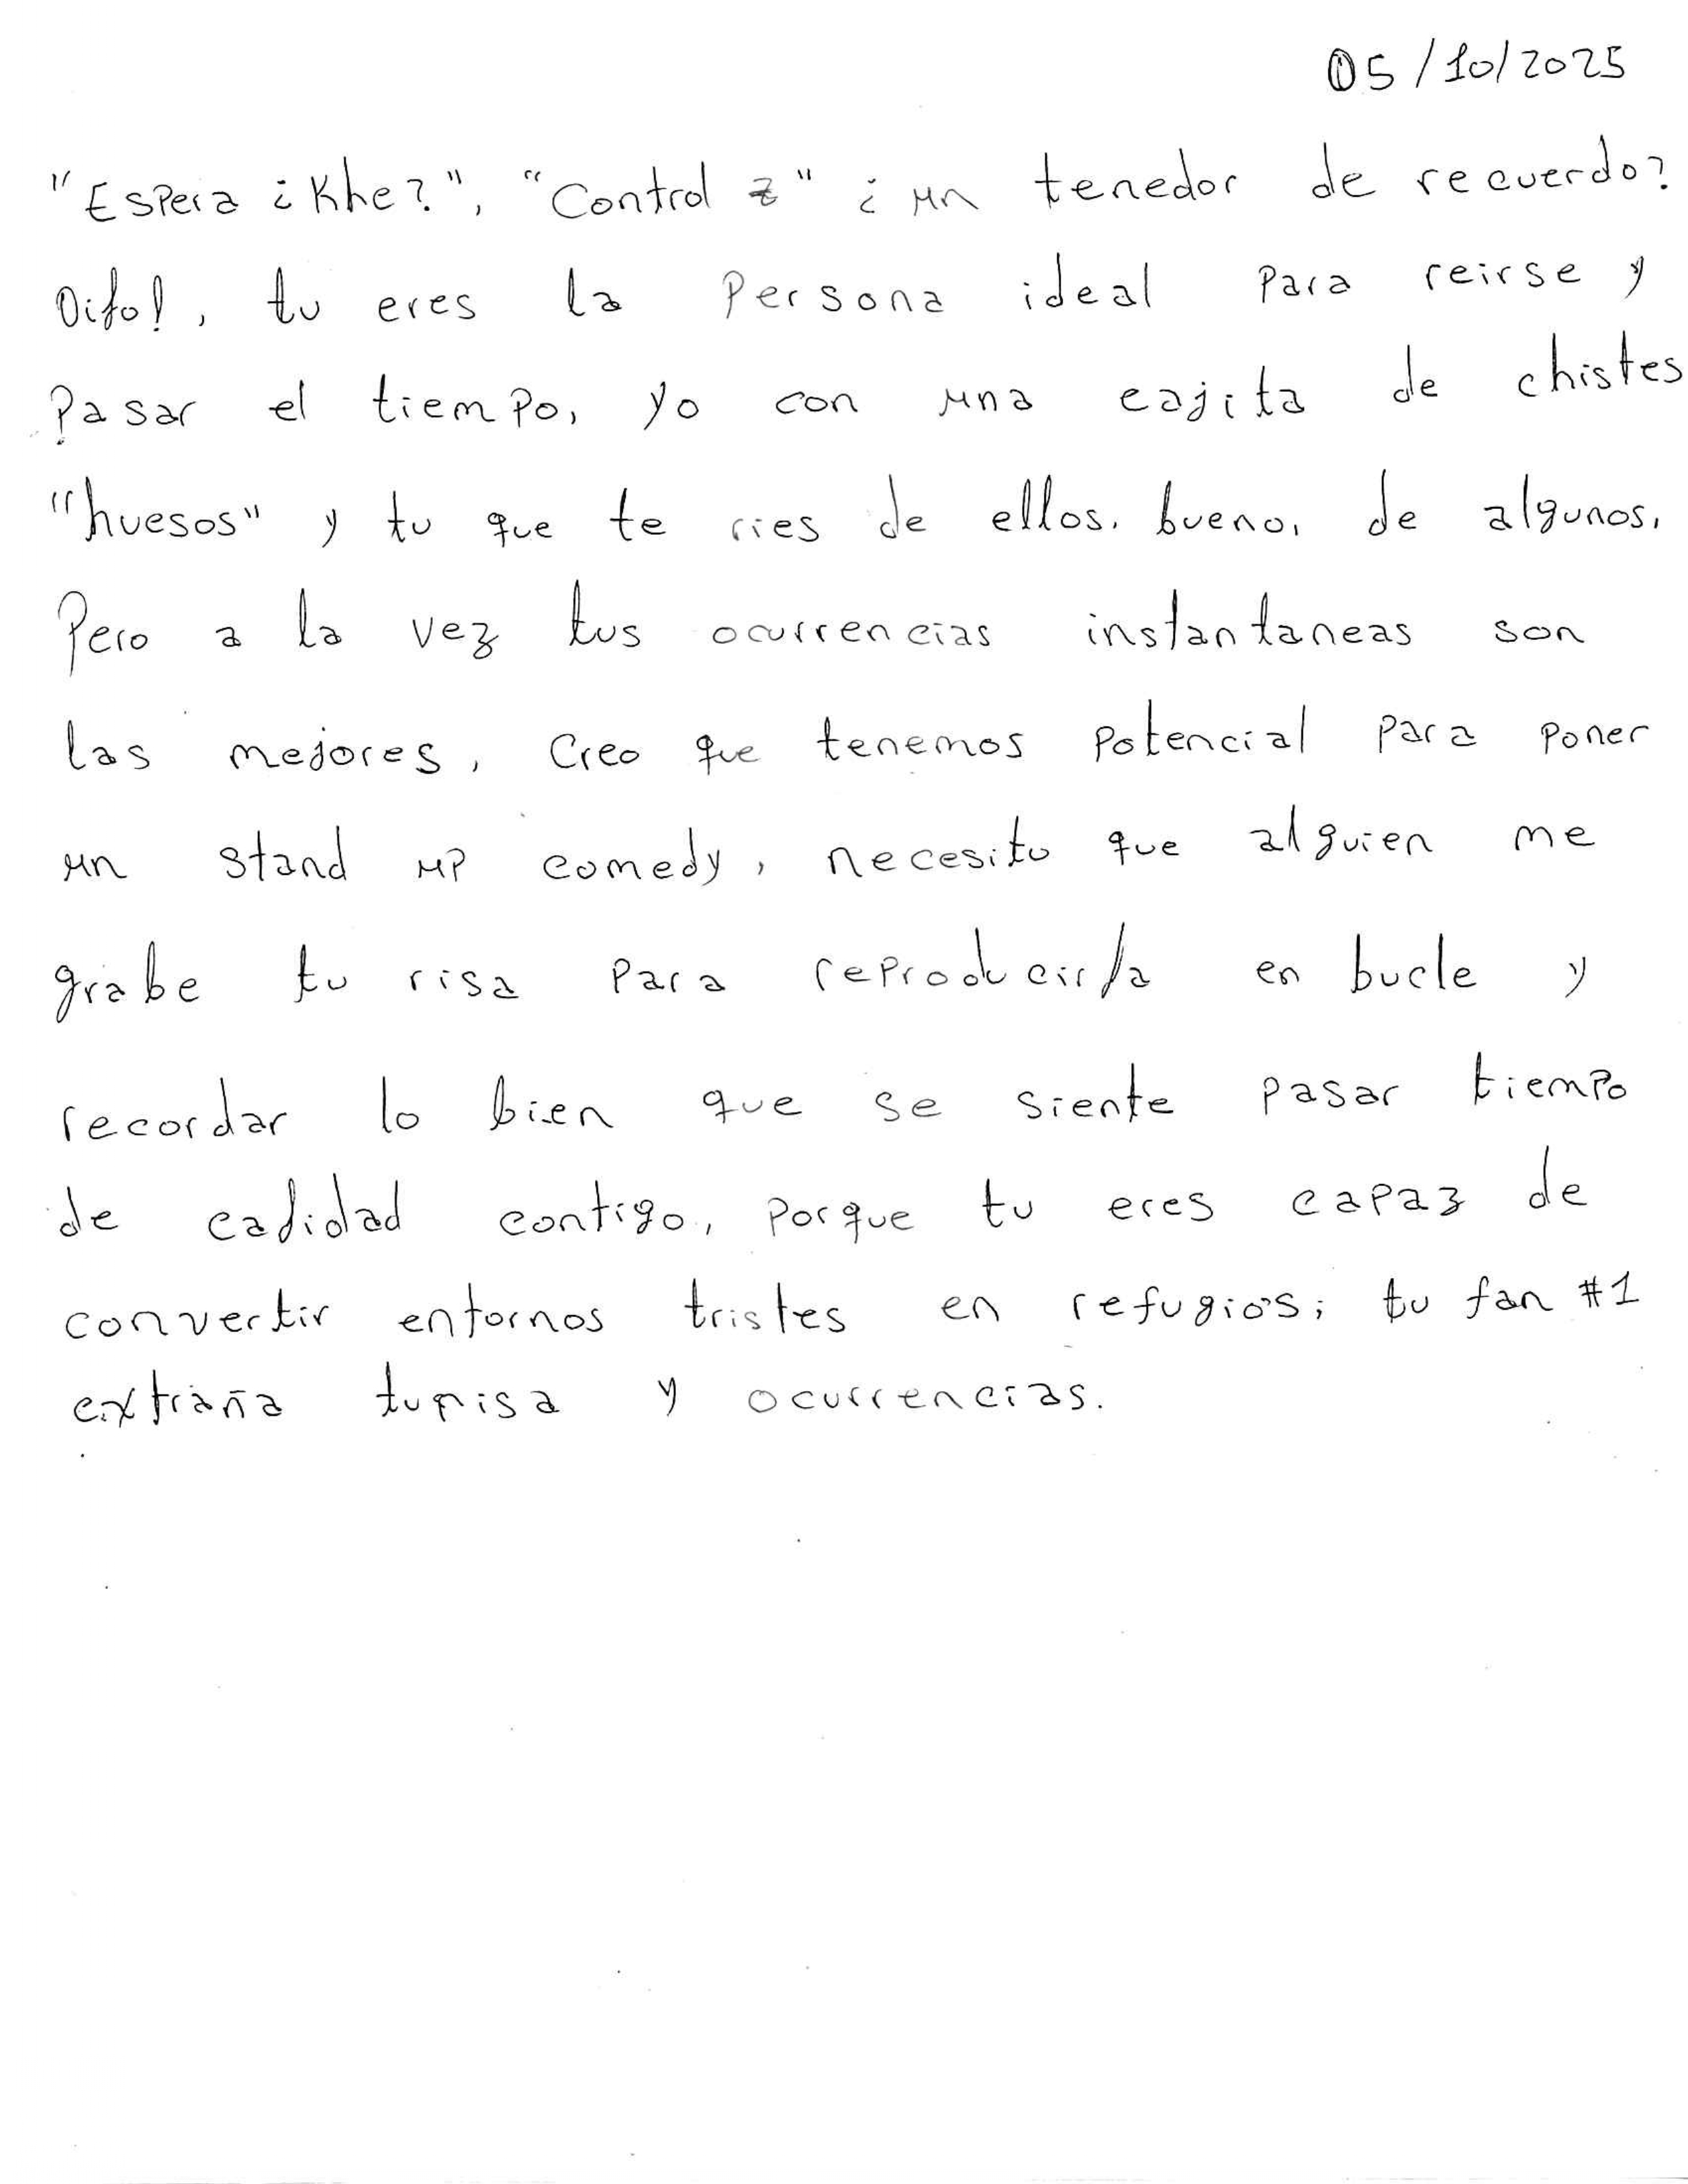 05/10/2025
"Espera ¿Khe?", "Control z" ¿un tenedor de recuerdo?
Oifo!, tu eres la persona ideal para reirse y
pasar el tiempo, yo con una cajita de chistes
"huesos" y tu que te ries de ellos. bueno, de algunos.
Pero a la vez tus ocurrencias instantaneas son
las mejores, Creo que tenemos potencial para poner
un stand up comedy, necesito que alguien me
grabe tu risa para reproducirla en bucle y
recordar lo bien que se siente pasar tiempo
de calidad contigo, porque tu eres capaz de
convertir entornos tristes en refugios; tu fan #1
extraña tu risa y ocurrencias.